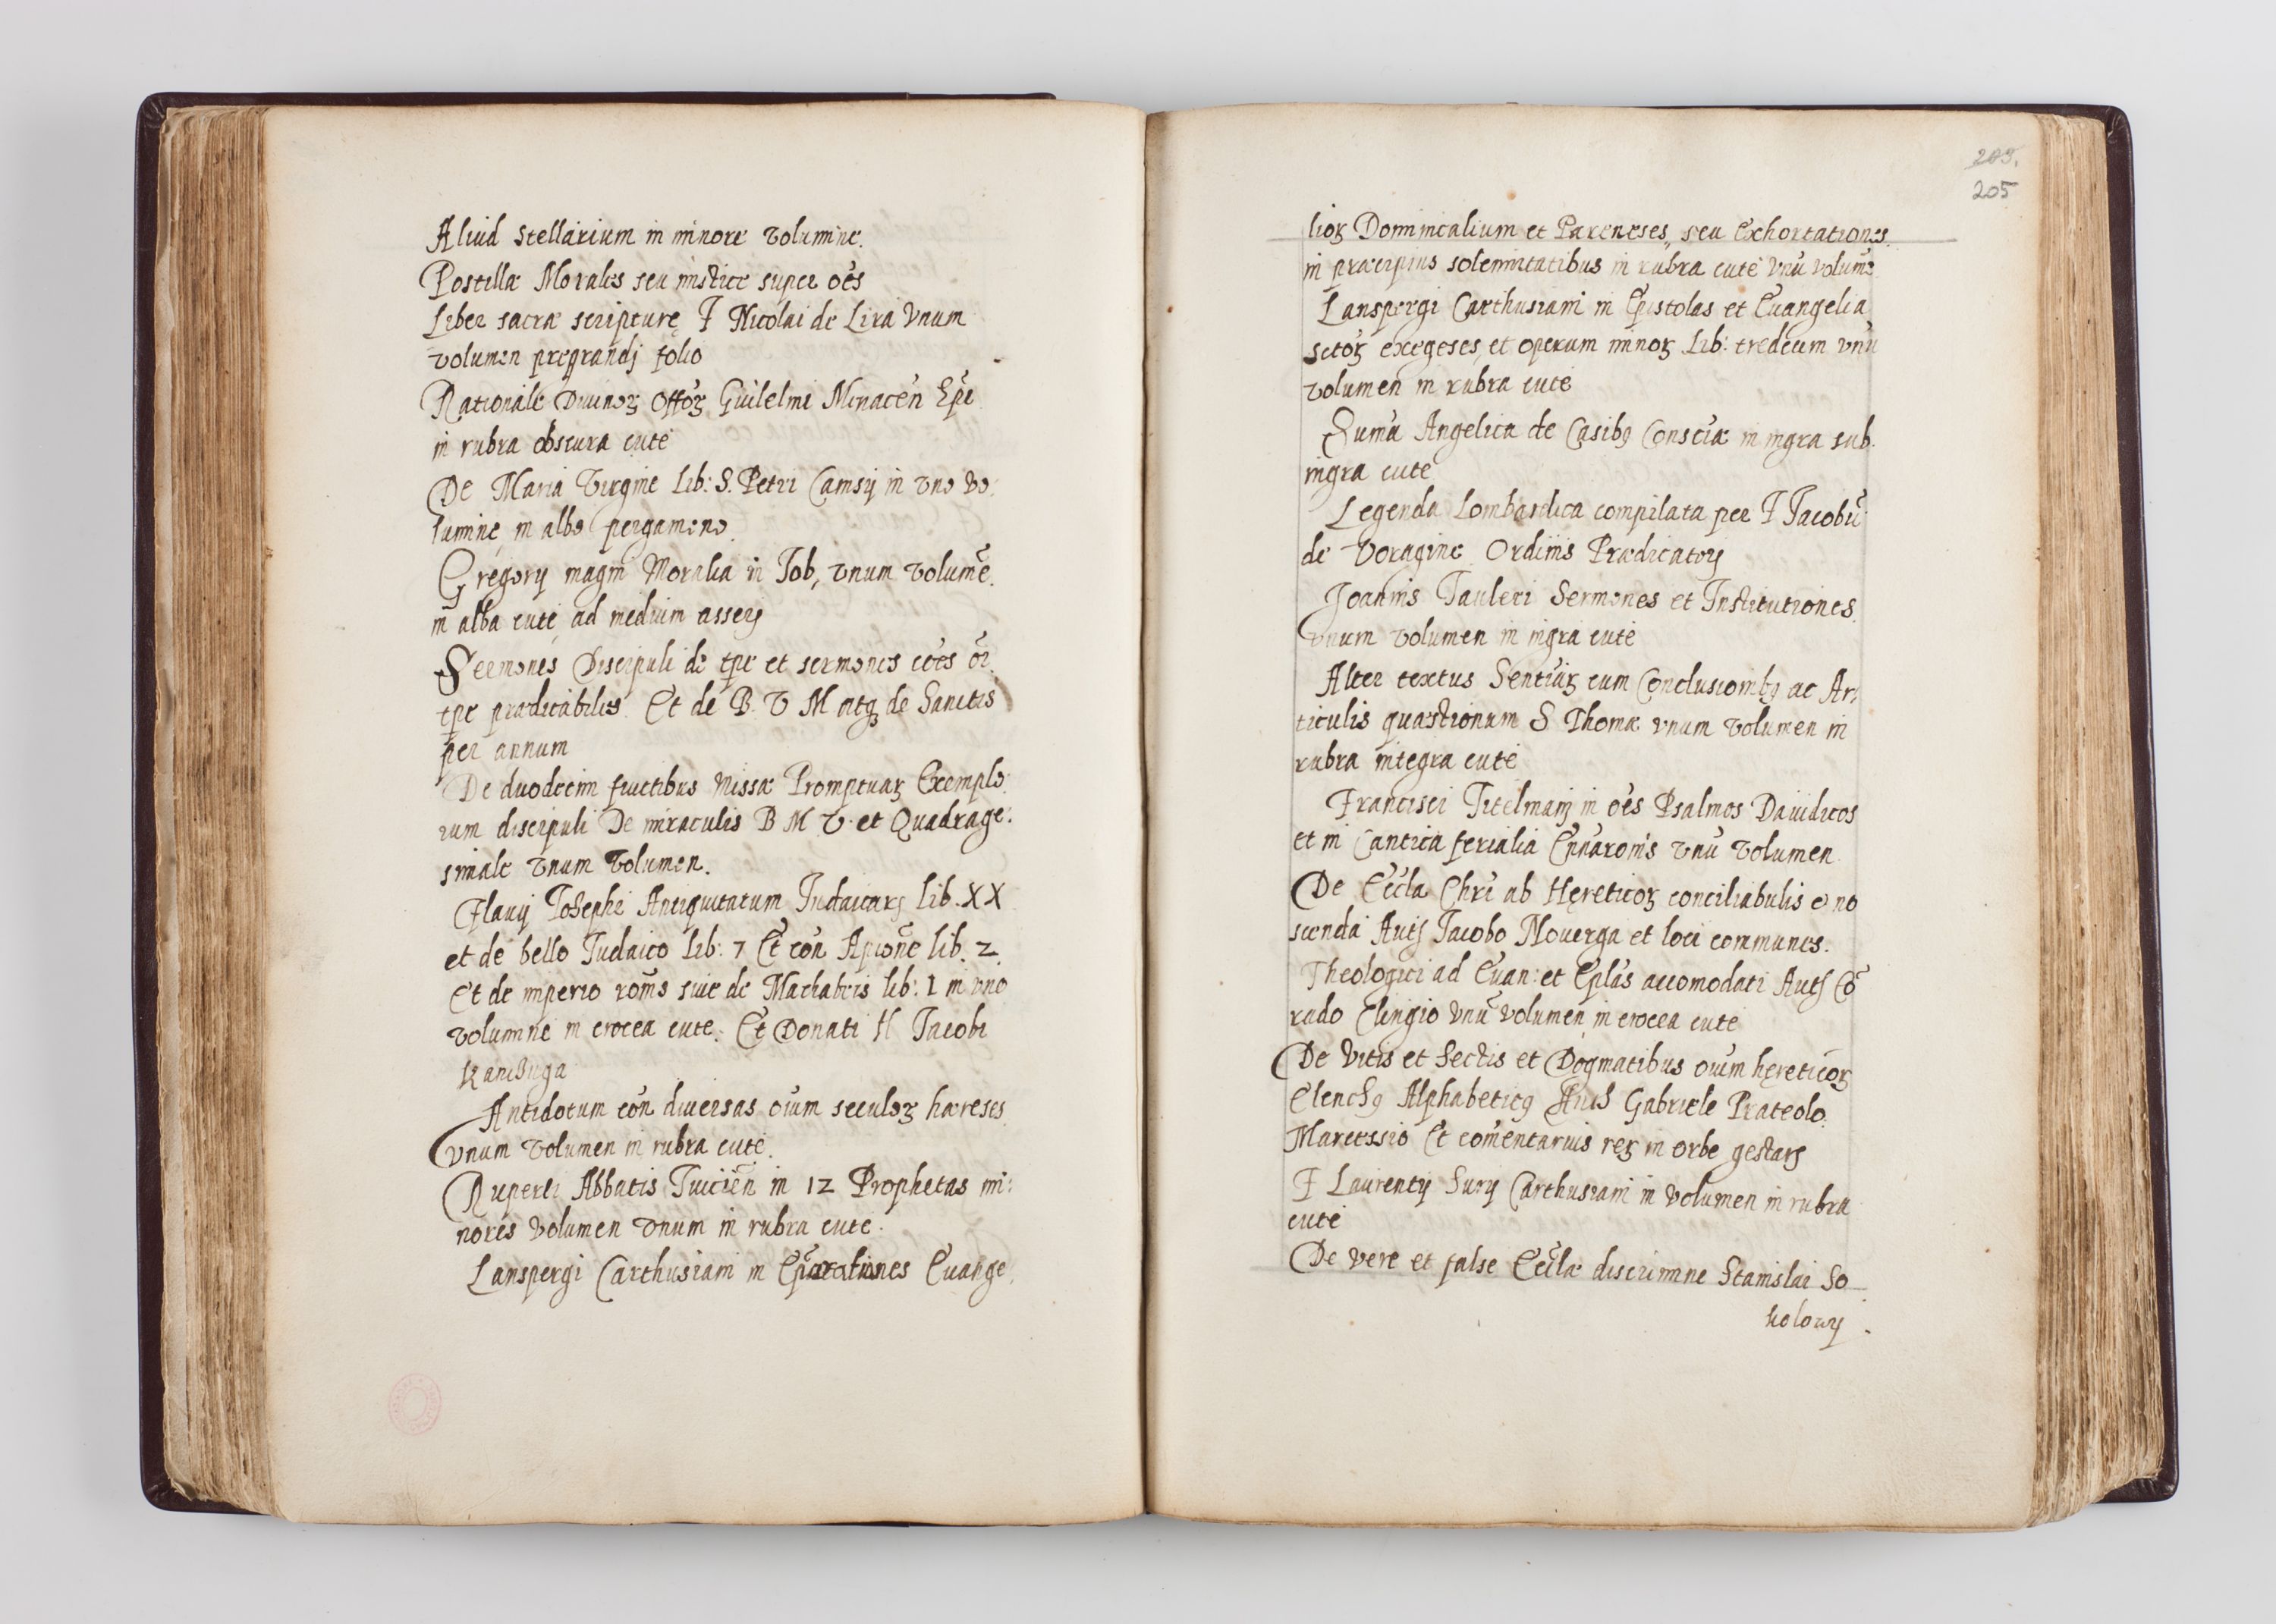 Aliud stellarium in minore volumine.
Postillæ Morales seu misticæ super oẽs
Liber sacræ scripturę F Nicolai de Lira Vnum
volumen pregrandj folio
Rationale Diuinoꝝ Offoꝝ Guilelmi Minaceñ Epĩ
in rubra obscura cute
De Maria Virgine Lib: S. Petri Camsÿ in vno vo:
lumine, in albo pergameno.
Gregorÿ magni Moralia in Iob, vnum volumẽ.
in alba cute, ad medium asserꝭ
Sermones Discipuli de tp̃e et sermones cões õi
tp̃e prædicabiles. Et de B. V M atqꝫ de Sanctis
per annum
De duodecim fructibus Missæ Promptuaꝝ Exemplo:
rum discipuli De miraculis B M V. et Quadrage:
simale vnum volumen.
Flauÿ Iosephi Antiquitatum Iudaicarꝭ lib. XX
et de bello Iudaico Lib: 7 Et cõn Apionẽ lib. 2.
Et de imperio roñis siue de Machabeis lib: 1 in vno
volumine in crocea cute. Et Donati H Iacobi
Antidotum cõn diuersas oĩum seculoꝝ hæreses
vnum volumen in rubra cute.
Ruperti Abbatis Tuicieñ in 12 Prophetas mi:
nores volumen vnum in rubra cute.
Lanspergi Carthusiani in Euange
205
lioꝝ Dominicalium et Pareneses, seu Exhortationes
in præcipuis solemnitatibus in rubra cute vnũ volumẽ
Lanspergi Carthusiani in Epistolas et Euangelia
sctoꝝ exegeses, et operum minoꝝ Lib: tredecim vnũ
volumen in rubra cute
Sum̃a Angelica de Casibꝰ Consciæ in nigra sub
nigra cute
Legenda Lombardica compilata per F Iacobũ
de Voragine Ordinis Prædicatoꝝ
Joannis Tauleri Sermones et Institutiones
vnum volumen in nigra cute
Alter textus Sentiaꝝ cum Conclusionibꝰ ac Ar:
ticulis quæstionum S Thomæ vnum volumen in
rubra integra cute
Francisci Titelmanj in oẽs Psalmos Dauidicos
et in Cantica ferialia vnũ volumen
De Eccla Chrĩ ab Hęreticoꝝ conciliabulis dino
scenda Autꝭ Iacobo Nouerga et loci communes.
Theologici ad Euan: et Eplas accomodati Autꝭ Cõ
rado Clingio vnũ volumen in crocea cute
De Vitis et Sectis et Dogmatibus oĩum hęreticoꝝ
Elenchꝰ Alphabeticꝰ Gabriele Prateolo
Marcossio Et com̃entarius reꝝ in orbe gestarꝭ
F Laurentÿ Surÿ Carthusiani in volumen in rubra
cute
De vere et false Ecclæ discrimine Stanislai So
kolowÿ